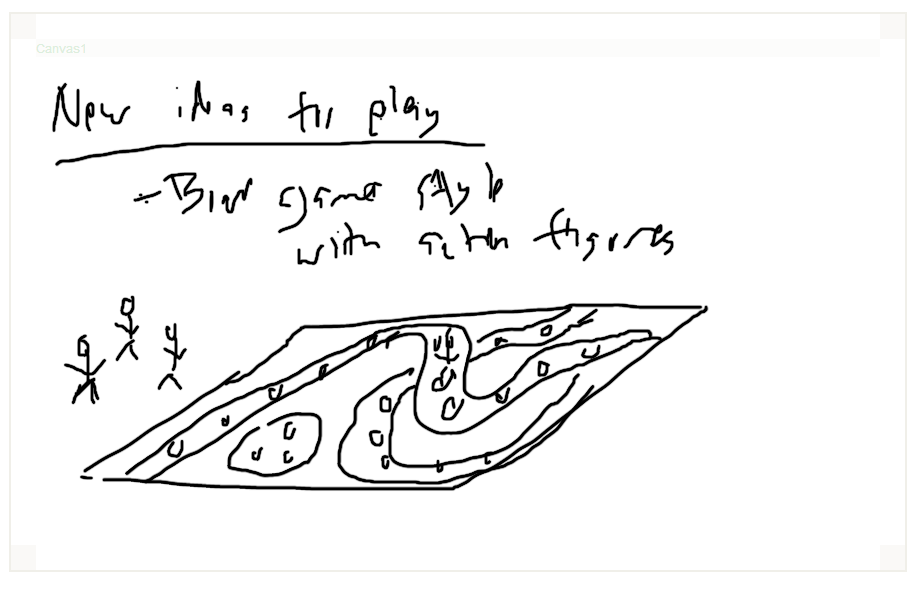 Canvas1
New ideas for play
- Board game style
with action figures